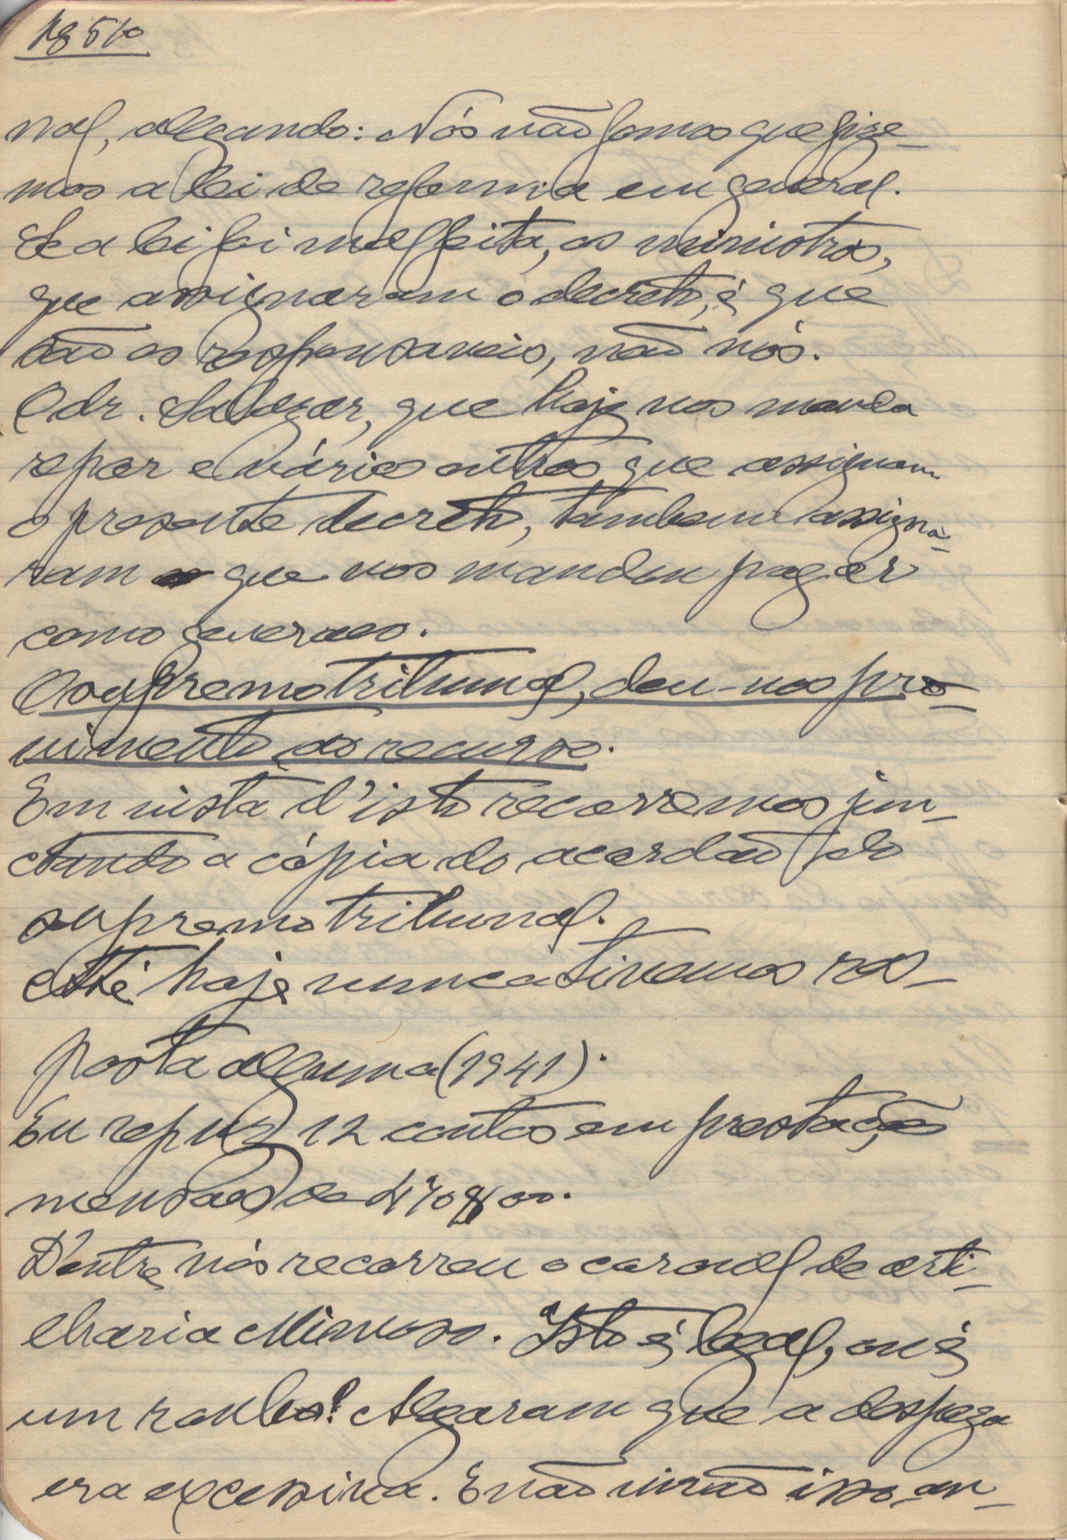 nal, alegando: Nós não fomos que fize-
mos a lei de reforma em general.
Se a lei foi mal feita, os ministros,
que assignaram o decreto, é que
são os responsaveis, não nós.
O dr. Salazar, que hoje nos manda
repor e vários outros que assignam
o presente decreto, tambem assigna-
ram que nos mandem pagar
como generaes.
O supremo tribunal, deu-nos pro-
vimento ao recurso.
Em vista d'isto recorremos jun-
ctando a cópia do acordão do
supremo tribunal.
Até hoje nunca tivemos res-
posta alguma (1941).
Eu repuz 12 contos em prestações
mensaes de
D'entre nós recorreu o coronel de arti-
lharia Mimoso. Isto é legal, ou é
um roubo? Alegaram que a despeza
era excessiva. E não virão isso an-